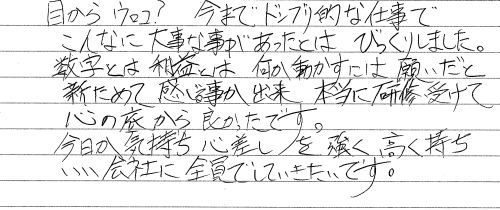 目からウロコ? 今までドンブリ的な仕事で
こんなに大事な事があったとは びっくりしました。
数字とは 利益とは 何か動かすには 願いだと
新ためて 感じ事が出来 本当に研修受けて
心の底から良かったです。
今日か気持ち心差しを強く高く持ち
いい会社に全員でしていきたいです。